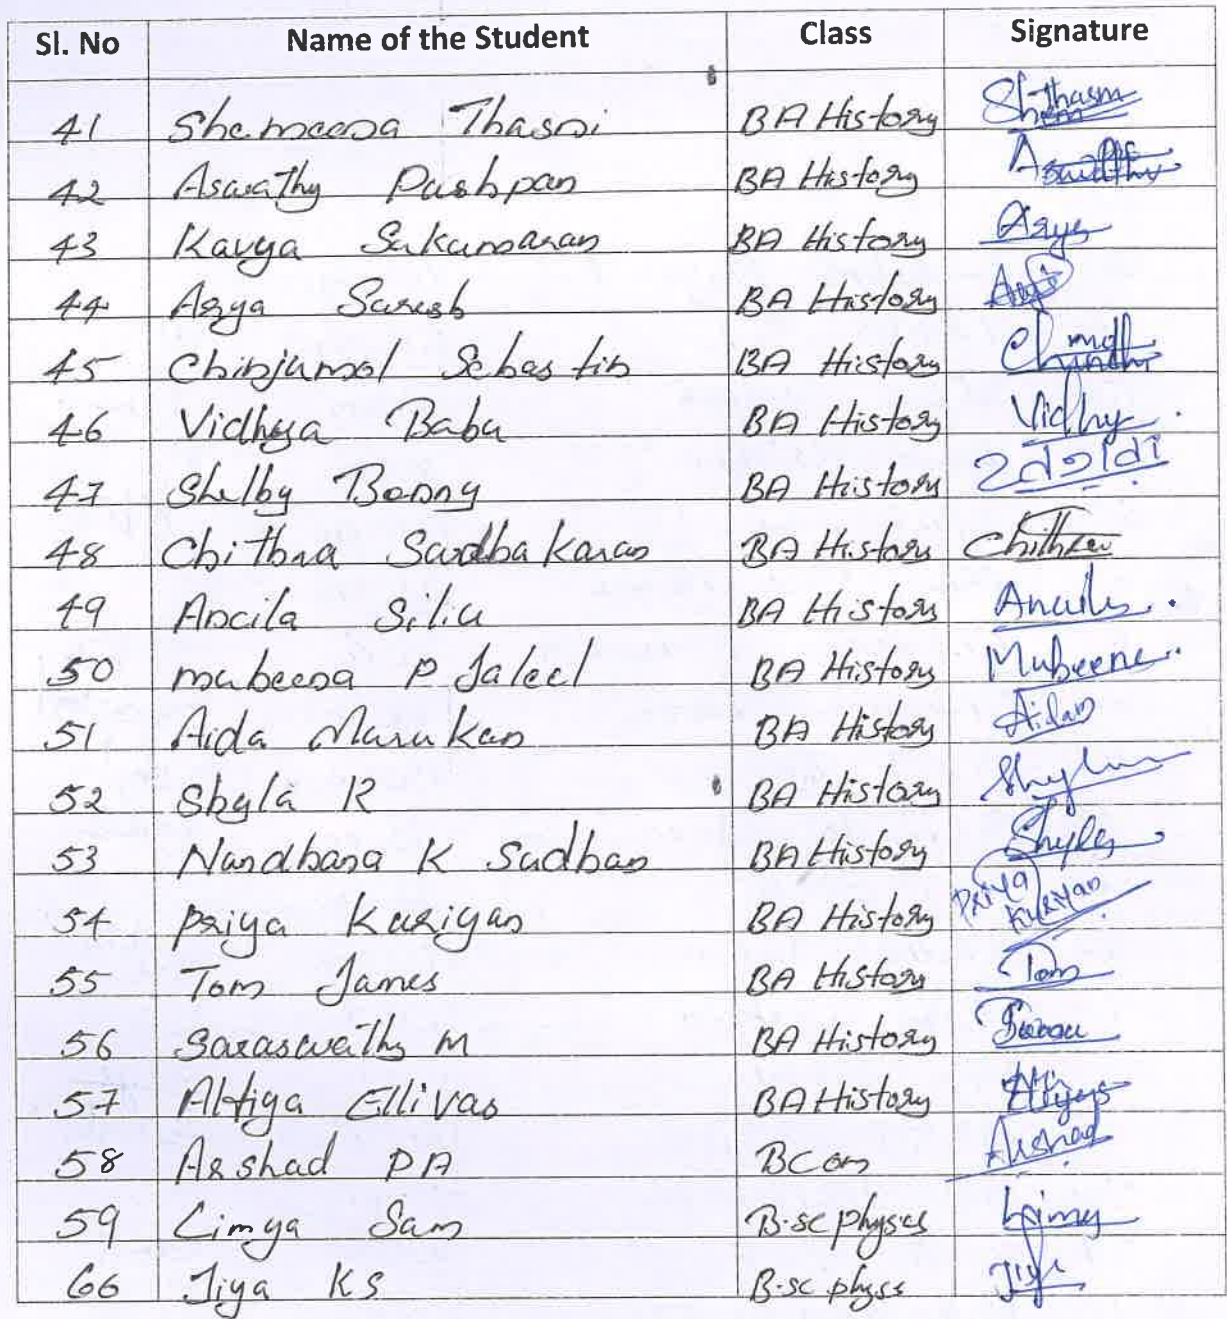 Sl. No Name of the Student Class Signature
41 Shemeena Thasni BA History
42 Aswathy Pushpan BA History Aswathy
43 Kavya Sukumaran BA History Arya
44 Arya Suresh BA History
45 Chinjumol Sebastin BA History
46 Vidhya Babu BA History Vidhy
47 Shelby Benny BA History
48 Chithra Sudhakaran BA History Chithra
49 Ancila Siliu BA History
50 mubeena P Jaleel BA History Mubeena
51 Aida Marukan BA History
52 Shyla R BA History
53 Nandhana K Sudhan BA History
54 Priya Kuriyan BA History PRIYA KURIYAN
55 Tom James BA History Tom
56 Saraswathy M BA History
57 Altiya Ellivas BA History
58 Arshad PA BCom Arshad
59 Limya Sam B.sc physcs
66 Jiya KS B.sc physs